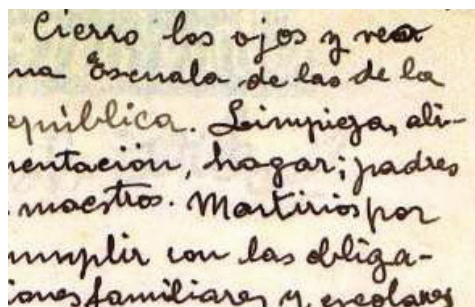 Cierro los ojos y veo
na Escuela de las de la
epública. Limpieza, ali-
entación, hogar; padres
maestros. Martirios por
umplir con las obliga-
iones familiares y escolares